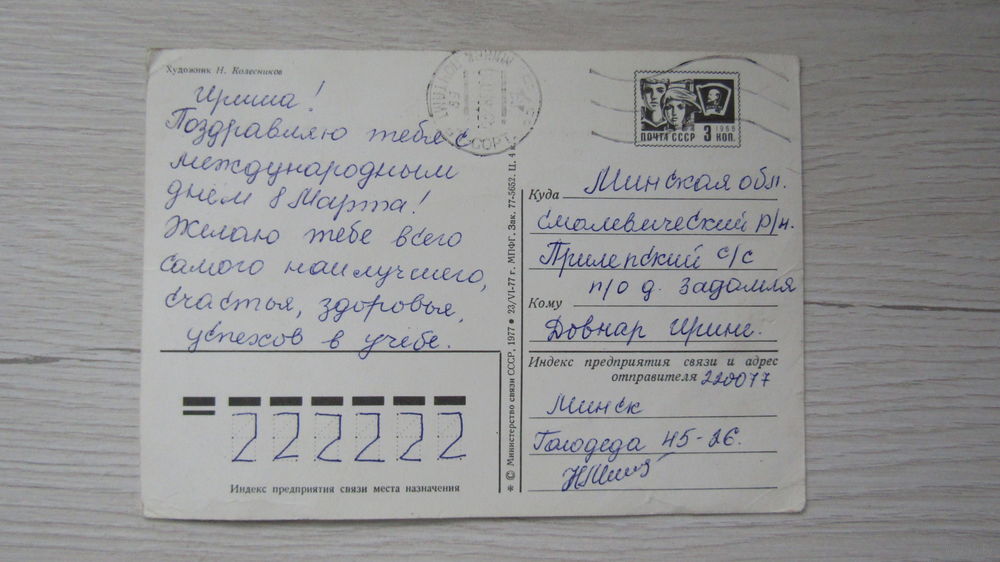 Художник Н. Колесников
Ириша!
Поздравляю тебя с
международным
днём 8 Марта!
Желаю тебе всего
самого наилучшего,
счастья, здоровья,
успехов в учёбе.
222222
Индекс предприятия связи места назначения
* © Министерство связи СССР, 1977 • 23/VI-77 г. МПФГ. Зак. 77-5652. Ц. 4 к.
МИНСК
СОРТ.
ПОЧТА СССР 3 КОП.
1966
Куда Минская обл.
Смолевический р/н.
Прилепский с/с
п/о д. Задомля
Кому
Довнар Ирине.
Индекс предприятия связи и адрес
отправителя 220077
Минск
Голодеда 45-26.